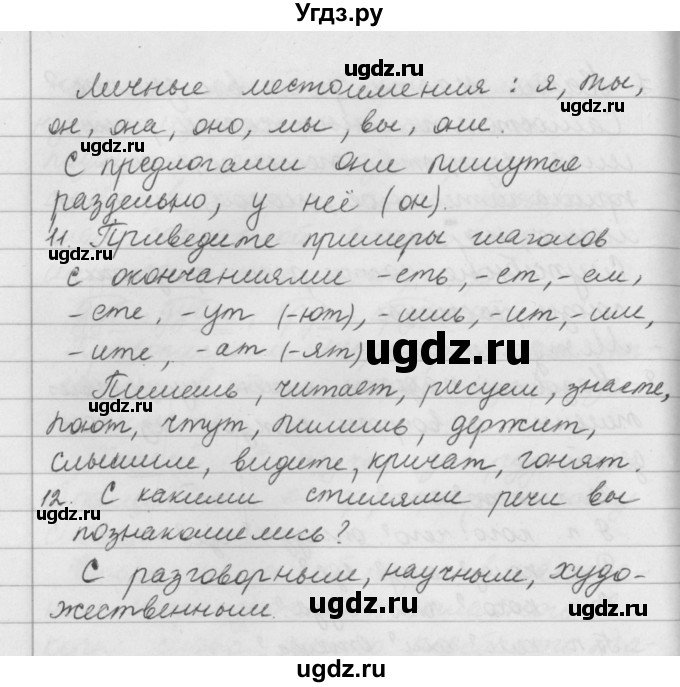 Угдз.ру
Личные местоимения: я, ты,
он, она, оно, мы, вы, они.
С предлогами они пишутся
раздельно, у неё (он)
11. Приведите примеры глаголов
с окончаниями -еть, -ет, -ем,
-ете, -ут (-ют), -ишь, -ит, -им,
-ите, -ат (-ят)
Пишешь, читает, рисуем, знаете,
поют, чтут, пилишь, держит,
слышим, видите, кричат, гонят.
12. С какими стилями речи вы
познакомились?
С разговорным, научным, худо-
жественным.
ugdz.ru
ugdz.ru
ugdz.ru
ugdz.ru
ugdz.ru
ugdz.ru
ugdz.ru
ugdz.ru
ugdz.ru
ugdz.ru
ugdz.ru